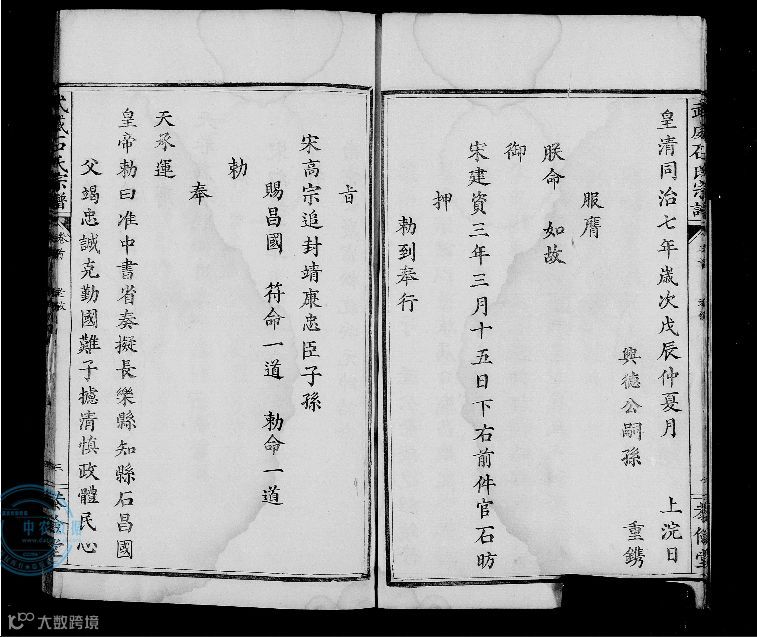 武威石氏宗譜
皇清同治七年歲次戊辰仲夏月 上浣日
興德公嗣孫 重鐫
服膺
朕命 如故
御
宋建資三年三月十五日下右前件官石昉
押
勅到奉行
旨
宋高宗追封靖康忠臣子孫
賜昌國 符命一道 勅命一道
勅
奉
天承運
皇帝勅曰准中書省奏擬長樂縣知縣石昌國
父竭忠誠克勤國難子摅清慎政體民心
武威石氏宗譜
卷首
大数跨境